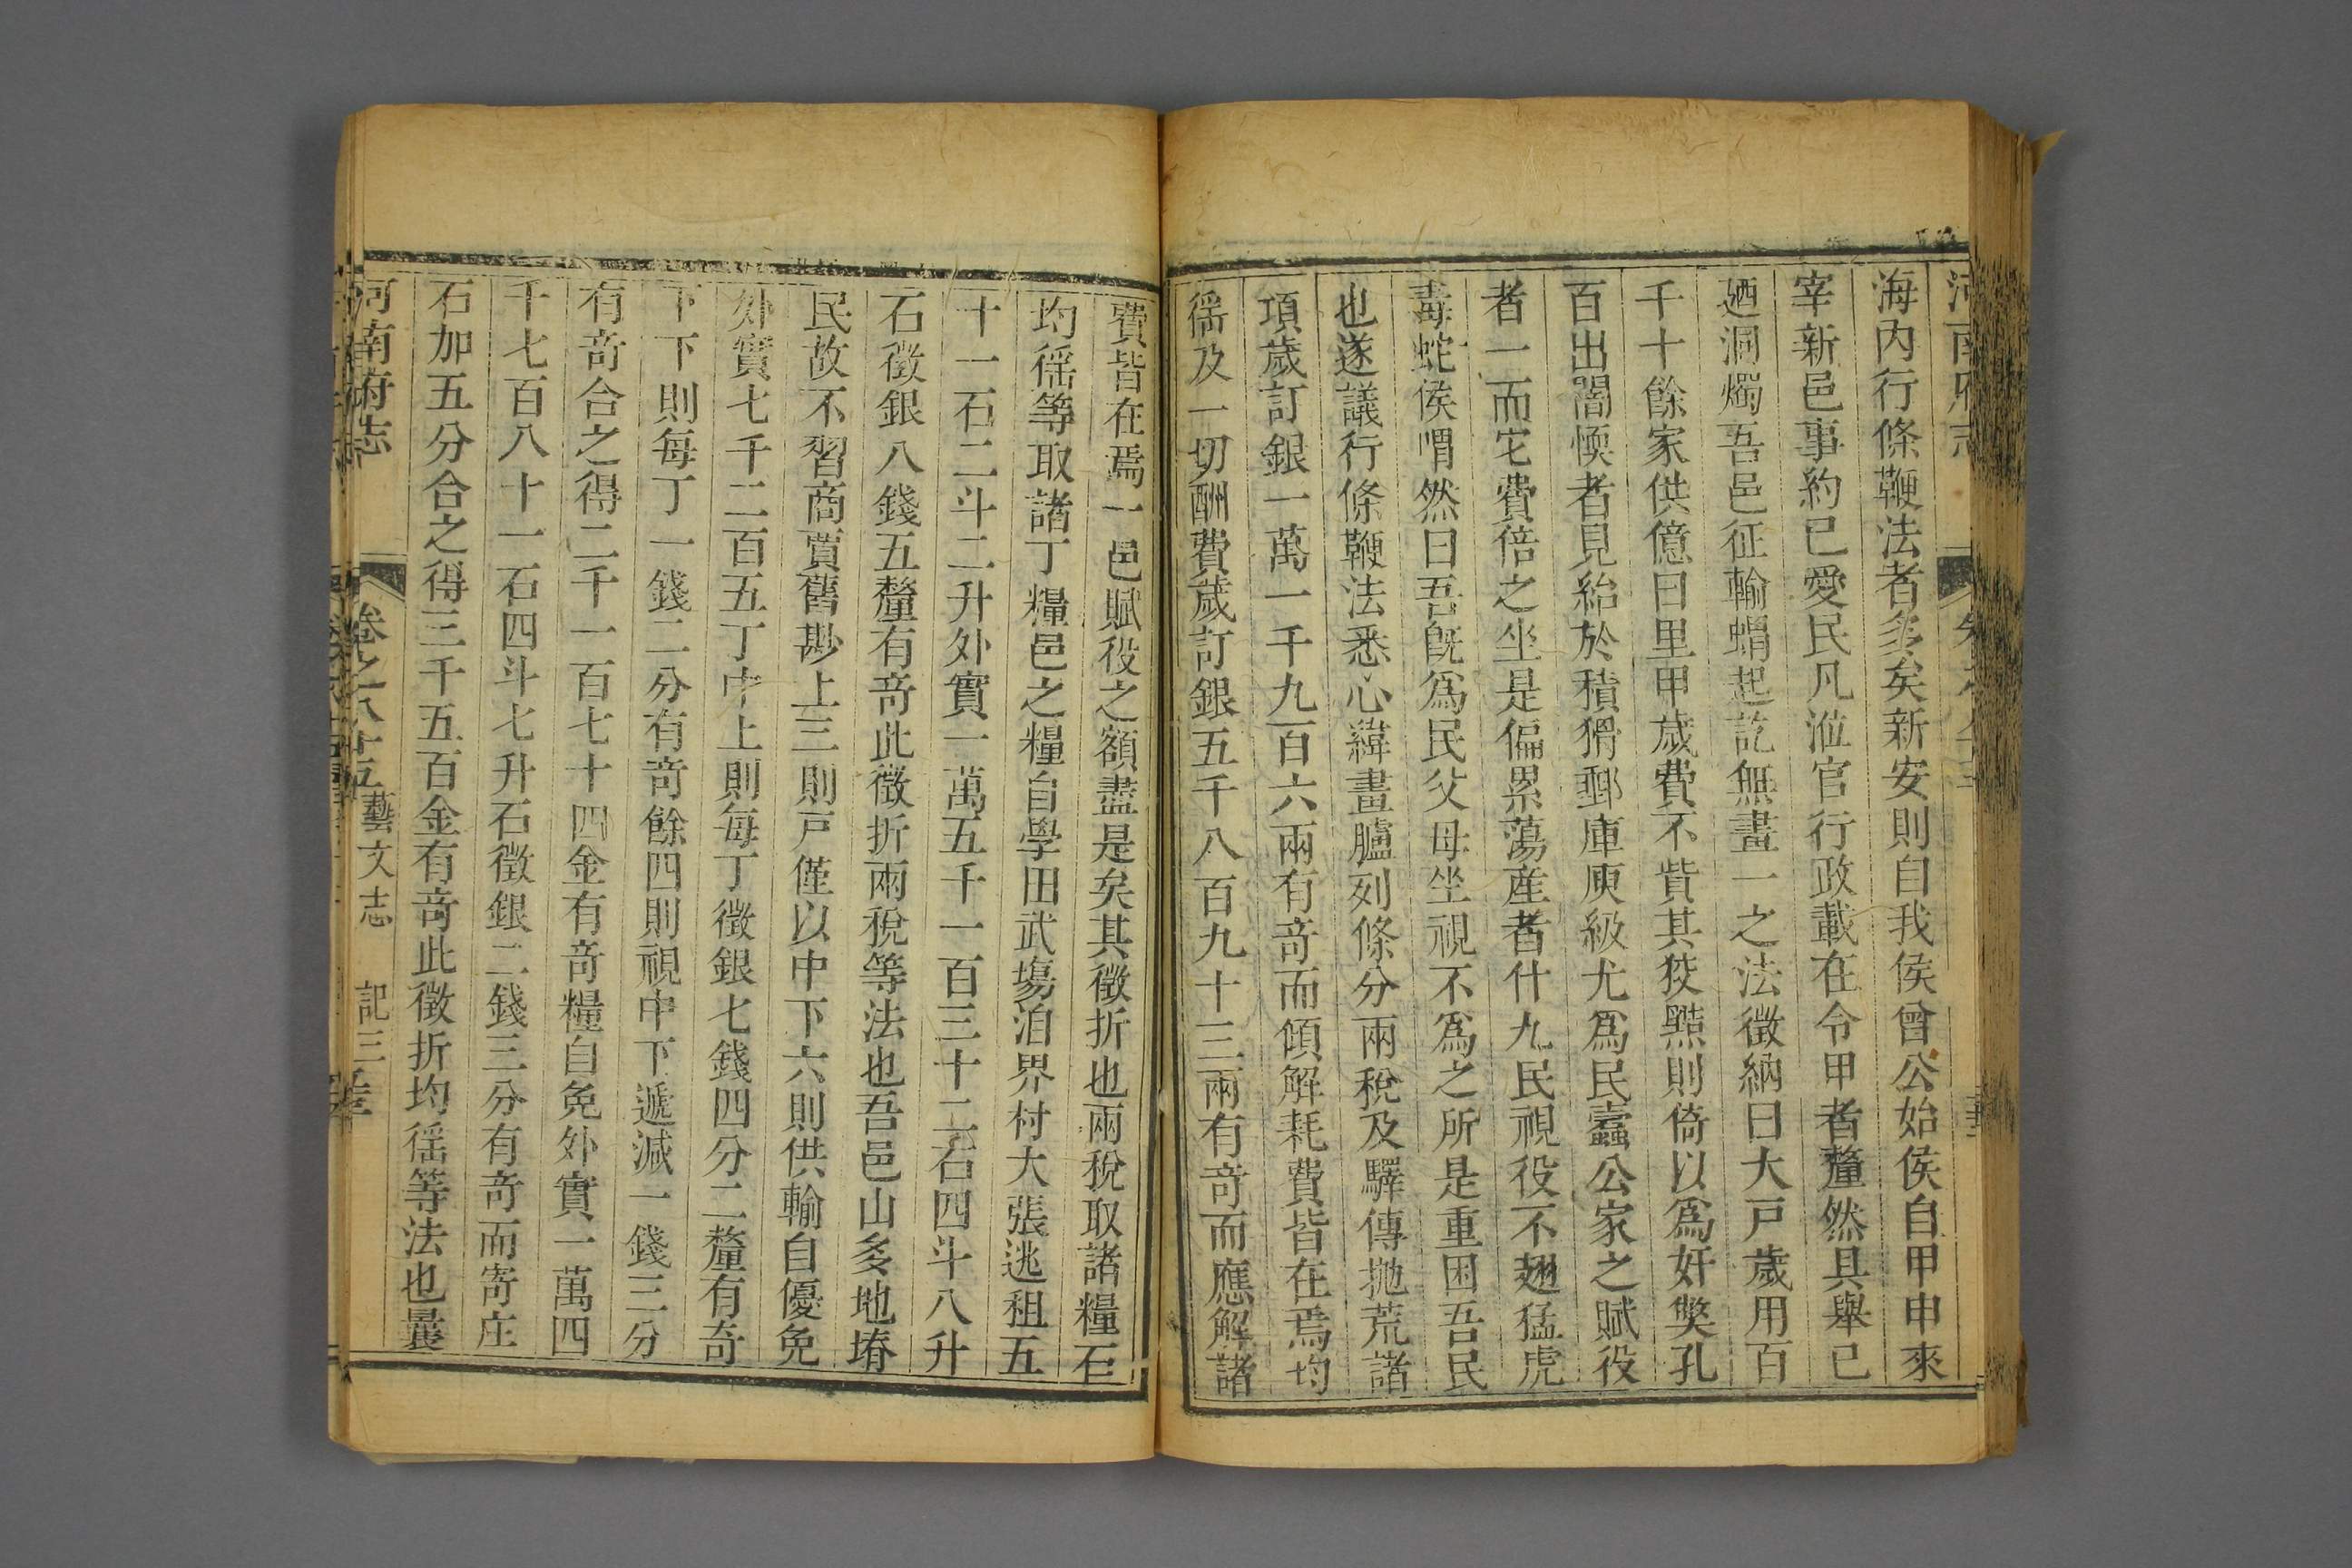 海內行條鞭法者多矣新安則自我侯曾公始侯自甲申來
宰新邑事約已愛民凡涖官行政載在令甲者釐然具舉已
廼洞燭吾邑征輸蝟起訖無畫一之法徵納曰大戸歲用百
千十餘家供億曰里甲歲費不貲其狡黠則倚以爲奸獘孔
百出闇愞者見紿於積猾郵庫庾級尤爲民蠹公家之賦役
者一而宅費倍之坐是偏累蕩産者什九民視役不翅猛虎
毒蛇侯喟然曰吾旣爲民父母坐視不爲之所是重困吾民
也遂議行條鞭法悉心緯畫臚列條分兩稅及驛傳抛荒諸
項歲訂銀一萬一千九百六兩有竒而傾解耗費皆在焉均
徭及一切酬費歲訂銀五千八百九十三兩有竒而應解諸
費皆在焉一邑賦役之額盡是矣其徵折也兩稅取諸糧石
均徭等取諸丁糧邑之糧自學田武塲泊界村大張逃租五
十一石二斗二升外實一萬五千一百三十二石四斗八升
石徵銀八錢五釐有竒此徵折兩稅等法也吾邑山多地塉
民故不習商賈舊尠上三則戸僅以中下六則供輸自優免
外實七千二百五丁中上則每丁徵銀七錢四分二釐有奇
下下則每丁一錢二分有竒餘四則視中下遞減一錢三分
有竒合之得二千一百七十四金有竒糧自免外實一萬四
千七百八十一石四斗七升石徵銀二錢三分有竒而寄庄
石加五分合之得三千五百金有竒此徵折均徭等法也曩
河南府志
卷之八十五
藝文志
記三